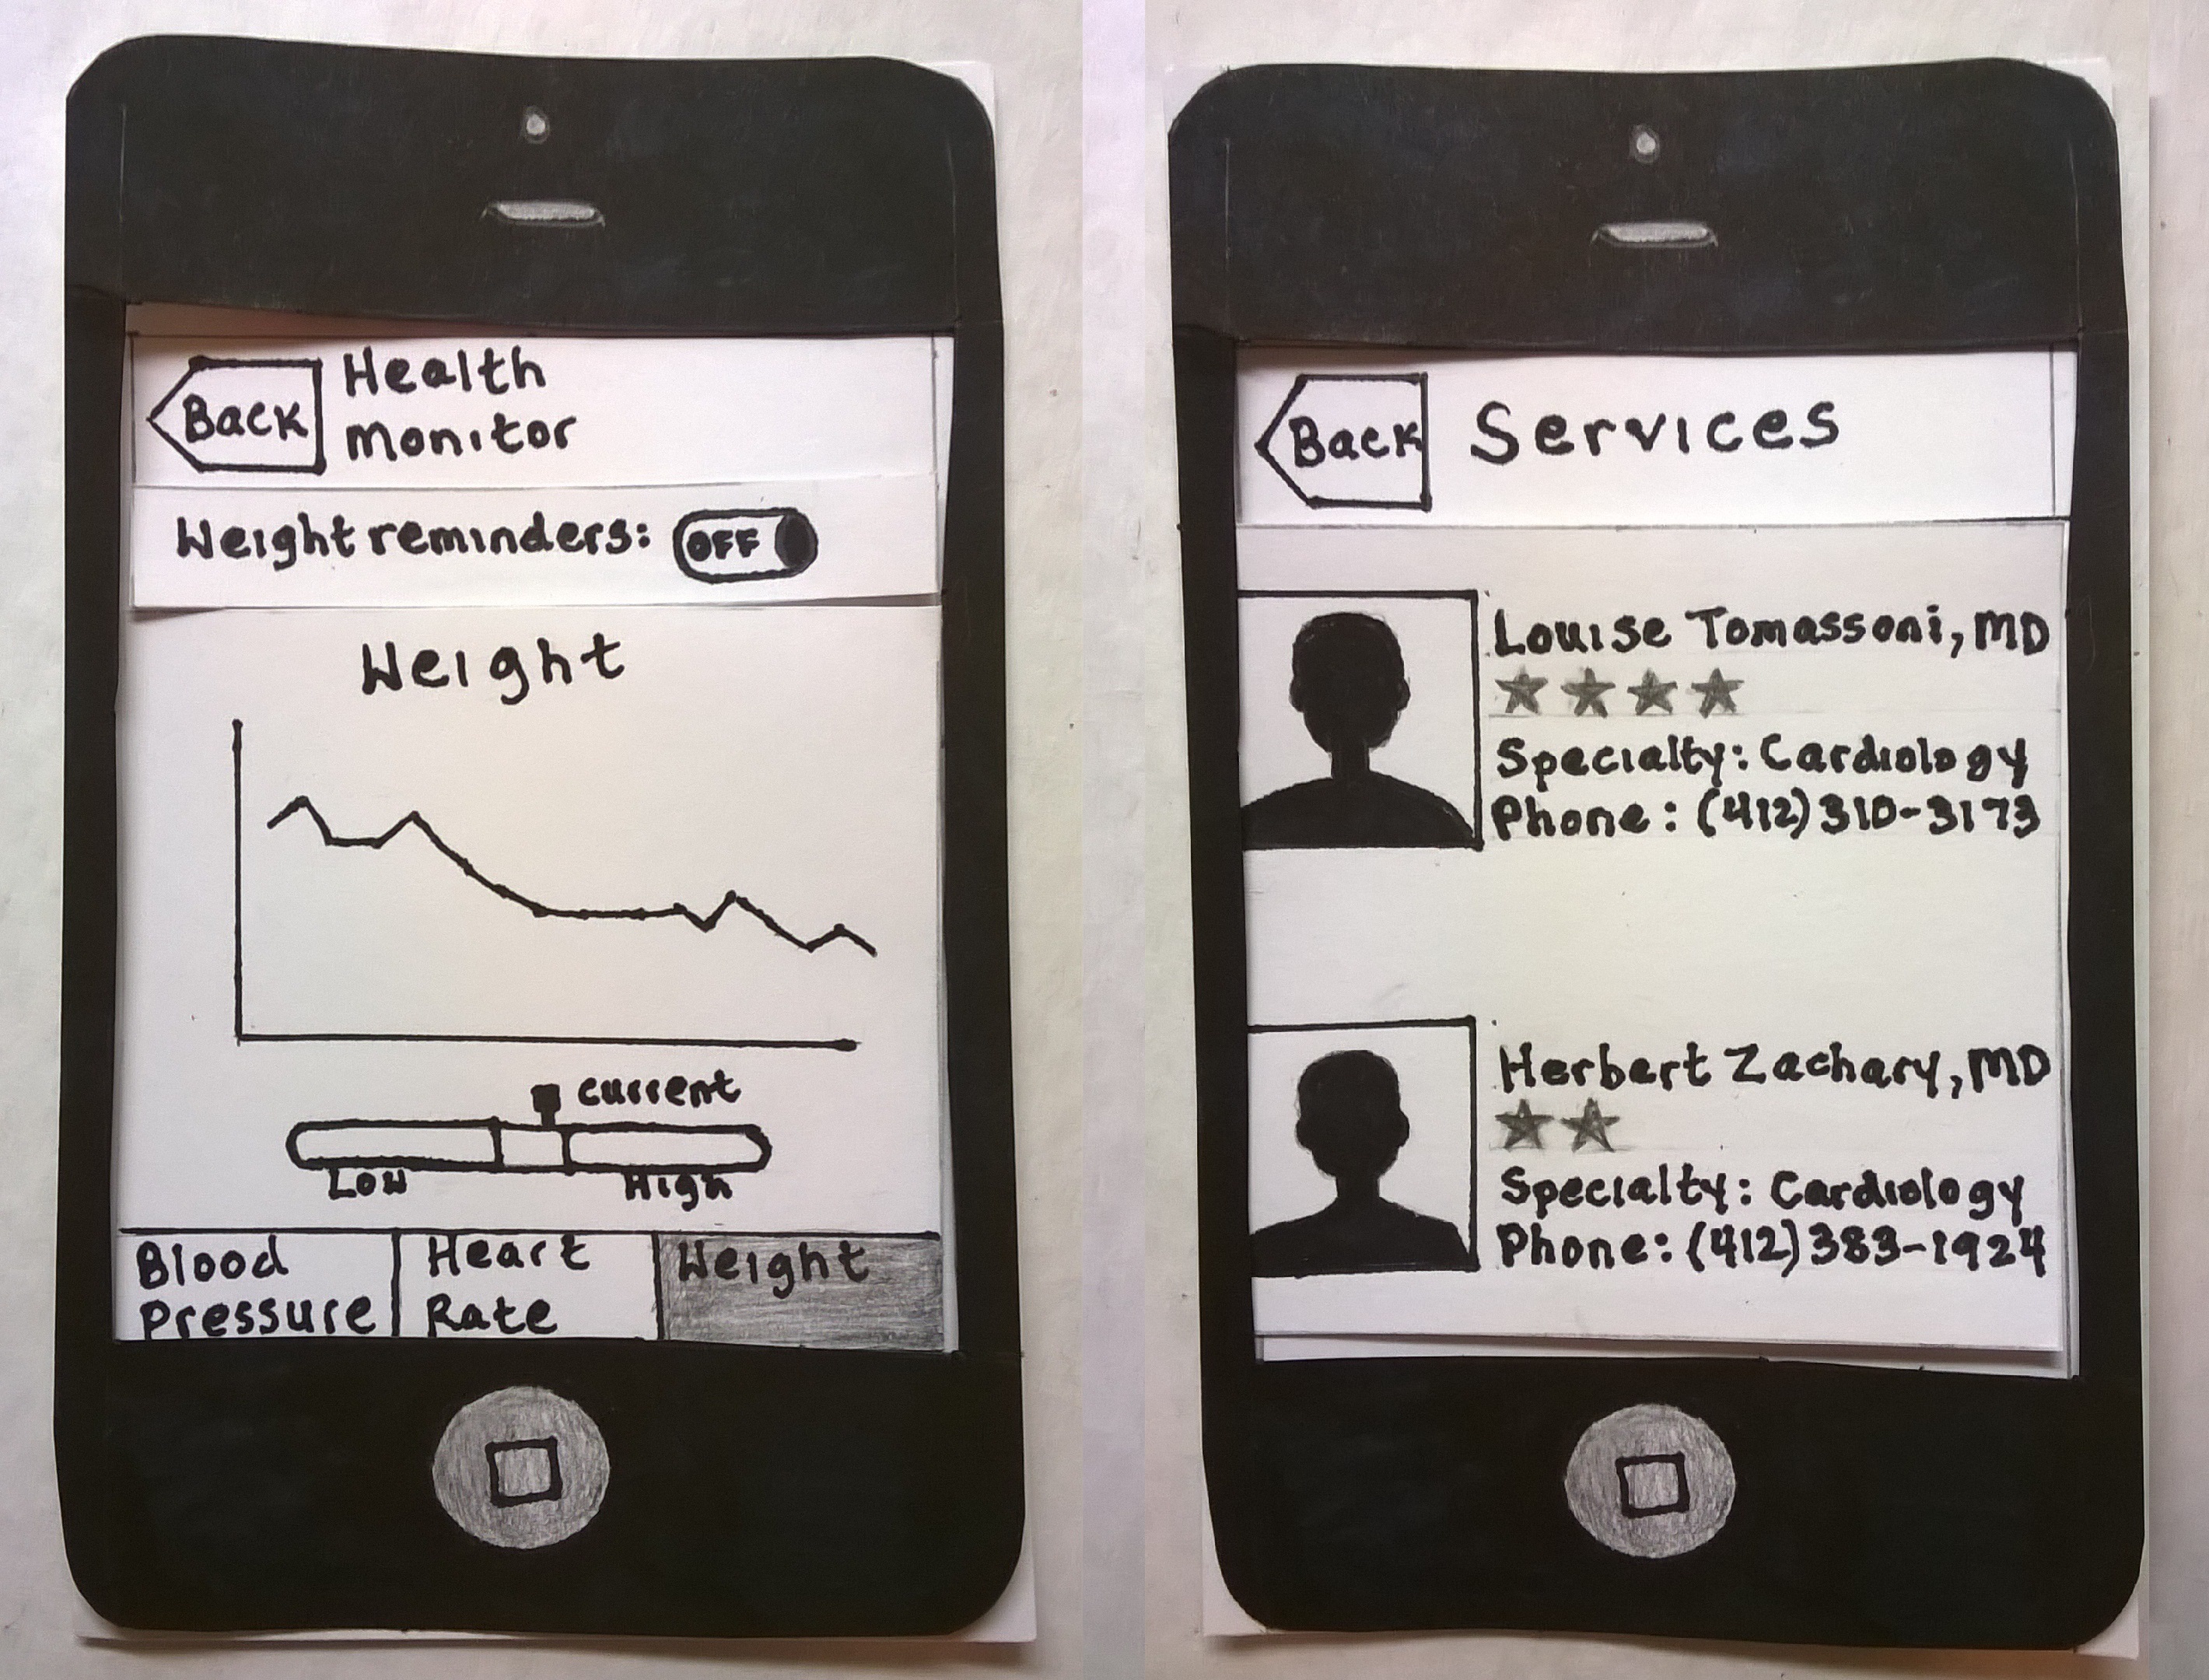 Back
Health
monitor
Weight reminders: OFF
Weight
current
Low High
Blood Pressure
Heart Rate
Weight
Back
Services
Louise Tomassoni, MD
Specialty: Cardiology
Phone: (412) 310-3173
Herbert Zachary, MD
Specialty: Cardiology
Phone: (412) 383-1924